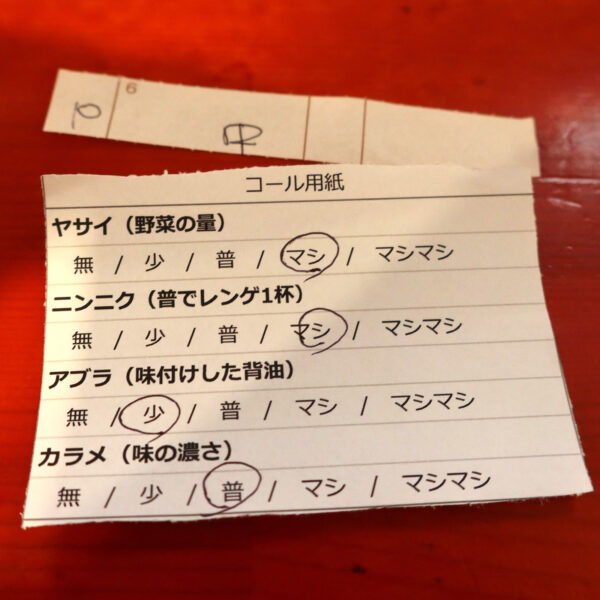 6
中
コール用紙
ヤサイ（野菜の量）
無 / 少 / 普 / マシ / マシマシ
ニンニク（普でレンゲ1杯）
無 / 少 / 普 / マシ / マシマシ
アブラ（味付けした背油）
無 / 少 / 普 / マシ / マシマシ
カラメ（味の濃さ）
無 / 少 / 普 / マシ / マシマシ